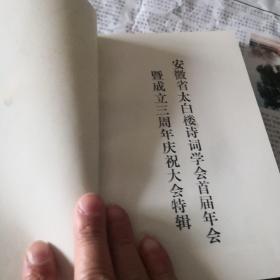 安徽省太白楼诗词学会首届年会
暨成立三周年庆祝大会特辑